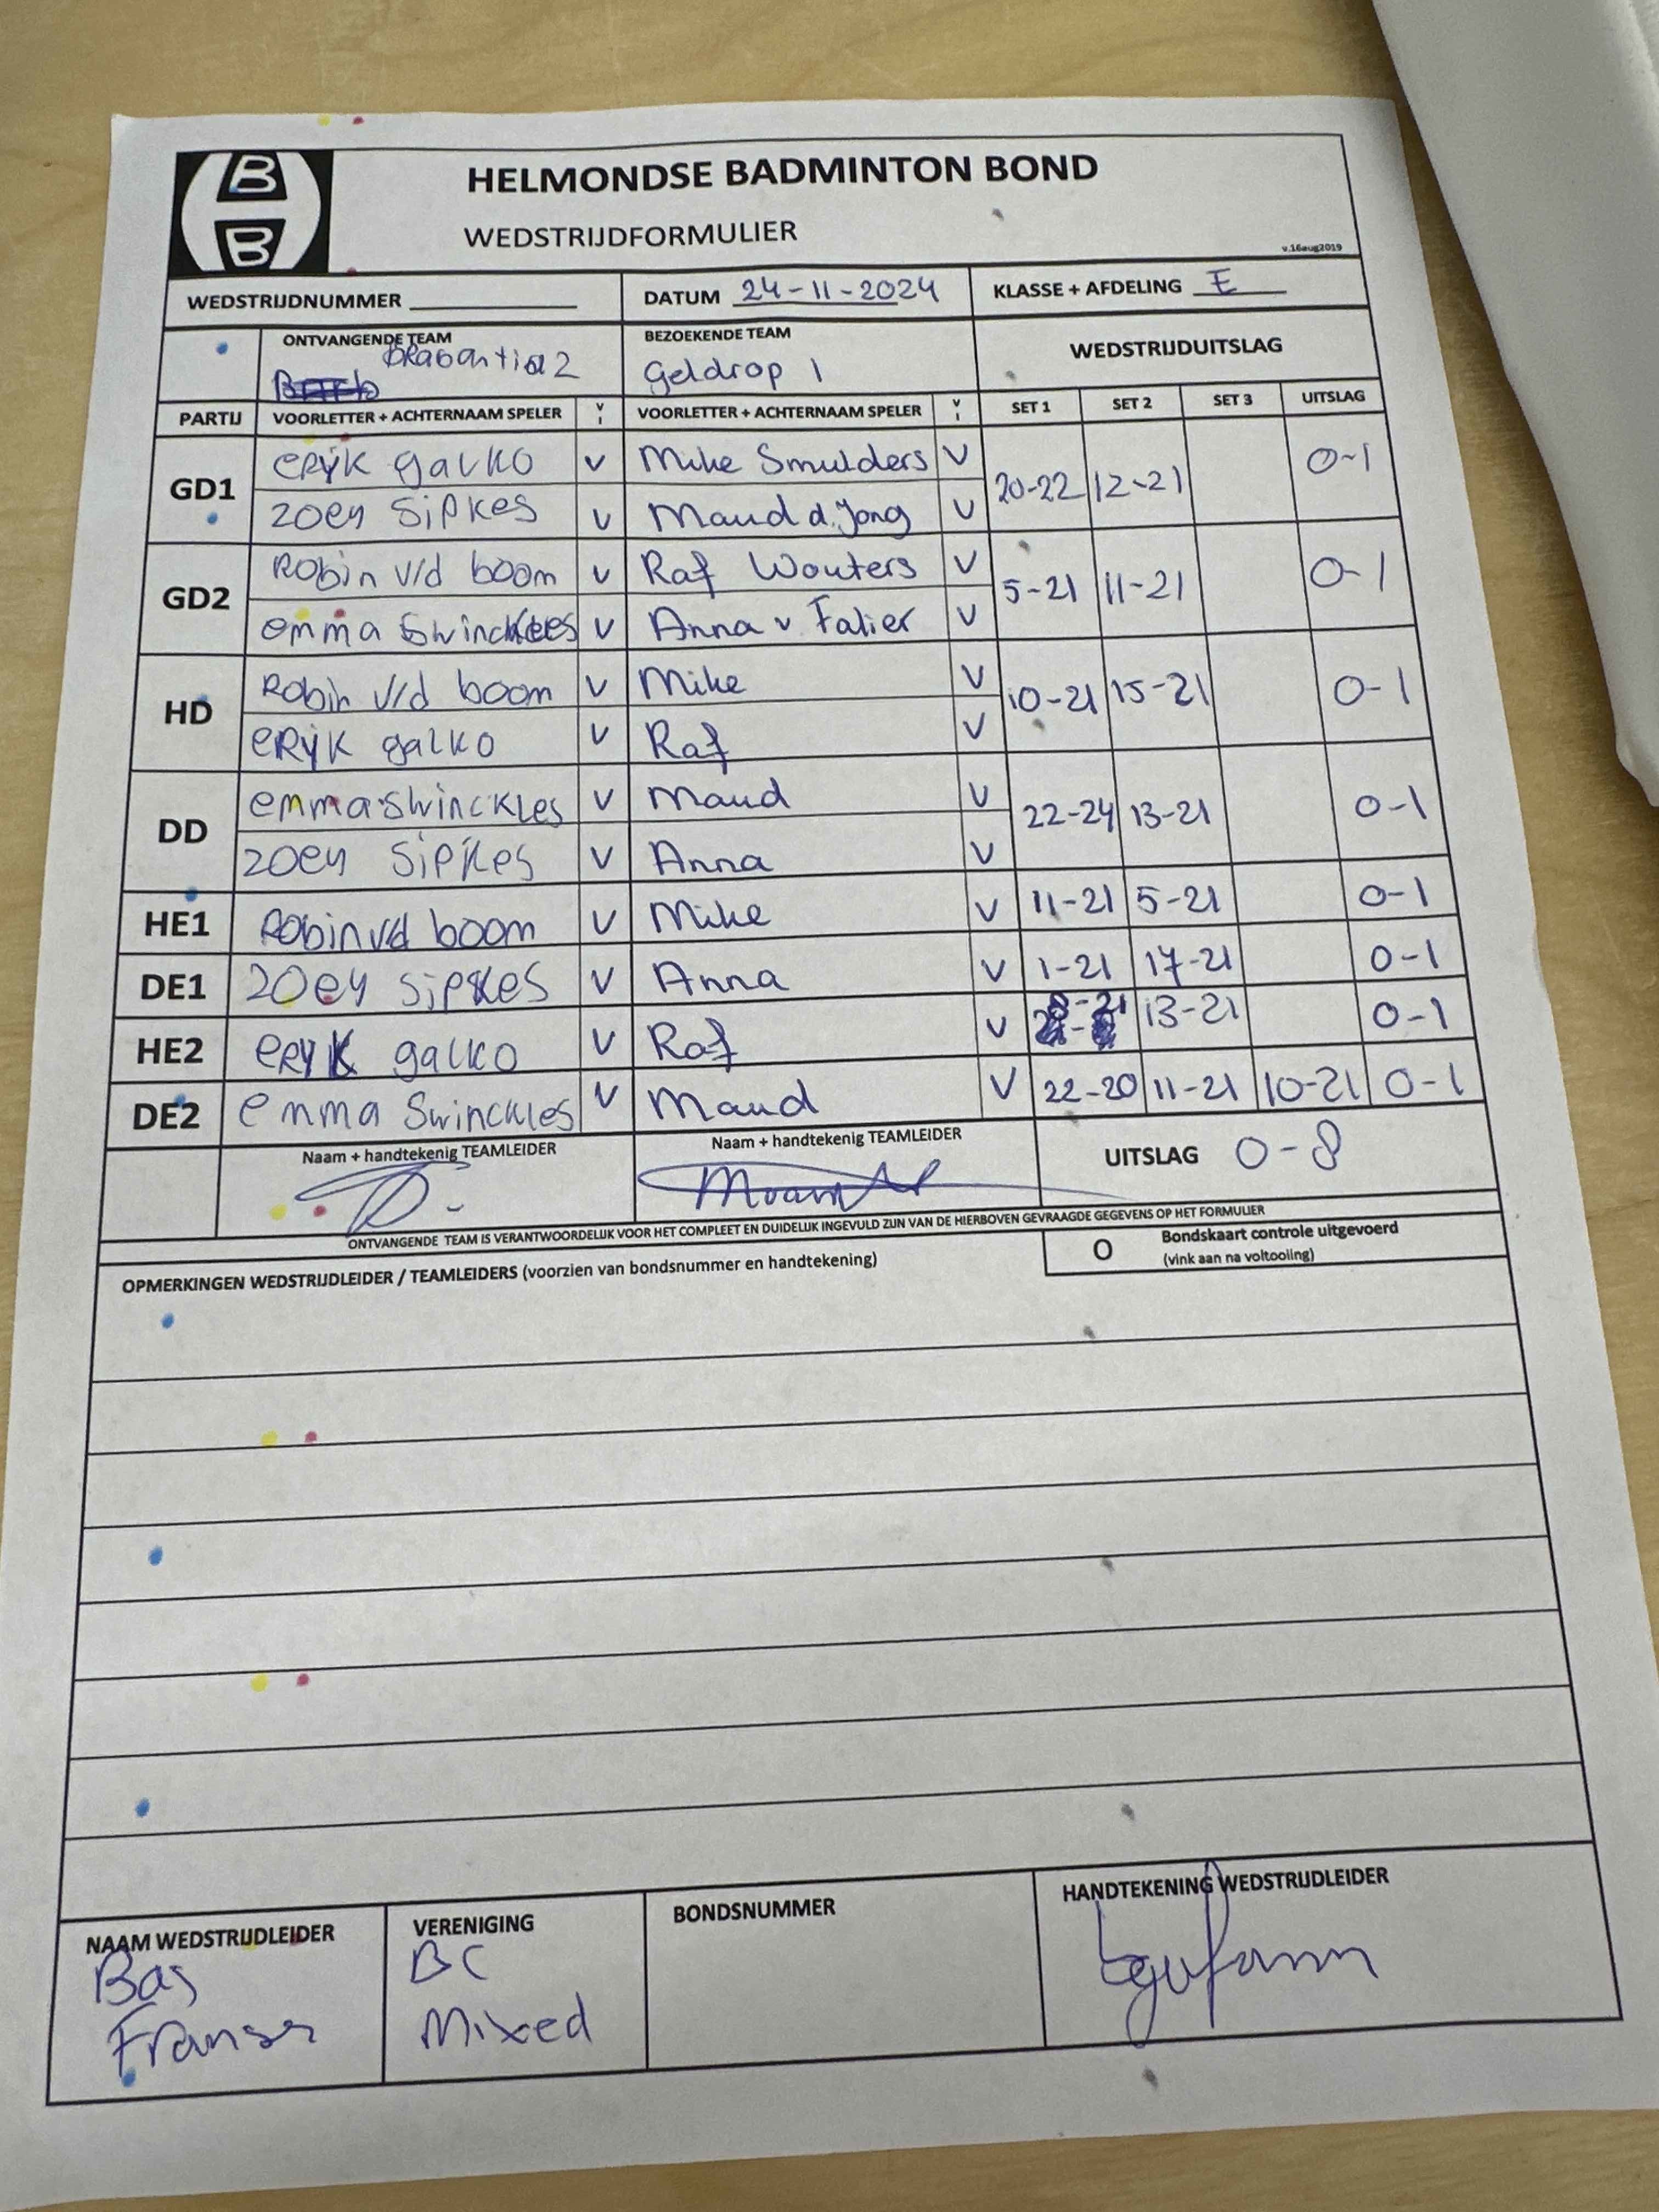 B
B
HELMONDSE BADMINTON BOND
WEDSTRIJDFORMULIER
v.16aug2019
WEDSTRIJDNUMMER DATUM 24-11-2024 KLASSE + AFDELING E
ONTVANGENDE TEAM BEZOEKENDE TEAM WEDSTRIJDUITSLAG
brabantia 2 Geldrop 1
PARTIJ VOORLETTER + ACHTERNAAM SPELER V I VOORLETTER + ACHTERNAAM SPELER V I SET 1 SET 2 SET 3 UITSLAG
GD1 eryk galko v Mike Smulders V 20-22 12-21 0-1
zoey sipkes v Maud d. Jong V
GD2 Robin v/d boom v Raf Wouters V 5-21 11-21 0-1
emma Swinckles V Anna v Falier V
HD Robin v/d boom V Mike V 10-21 15-21 0-1
eryk galko V Raf V
DD emma Swinckles V Maud V 22-24 13-21 0-1
zoey sipkes V Anna V
HE1 Robin v/d boom V Mike V 11-21 5-21 0-1
DE1 zoey sipkes V Anna V 1-21 17-21 0-1
HE2 eryk galko V Raf V 8-21 13-21 0-1
DE2 emma Swinckles V Maud V 22-20 11-21 10-21 0-1
Naam + handtekenig TEAMLEIDER Naam + handtekenig TEAMLEIDER UITSLAG 0-8
ONTVANGENDE TEAM IS VERANTWOORDELIJK VOOR HET COMPLEET EN DUIDELIJK INGEVULD ZIJN VAN DE HIERBOVEN GEVRAAGDE GEGEVENS OP HET FORMULIER
OPMERKINGEN WEDSTRIJDLEIDER / TEAMLEIDERS (voorzien van bondsnummer en handtekening) O Bondskaart controle uitgevoerd
(vink aan na voltooling)
NAAM WEDSTRIJDLEIDER VERENIGING BONDSNUMMER HANDTEKENING WEDSTRIJDLEIDER
Bas BC
Mixed